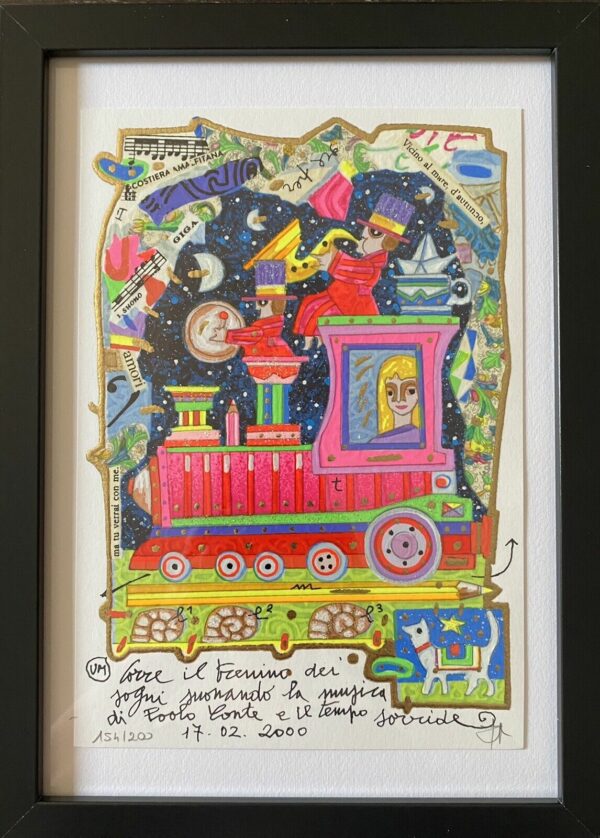 COSTIERA AMALFITANA
Vicino al mare, d'autunno,
GIGA
I. SUONO
amori
ma tu verrai con me.
t
m
l1 l2 l3
VM Corre il trenino dei
sogni suonando la musica
di Paolo Conte e il tempo sorride
154/200 17.02.2000